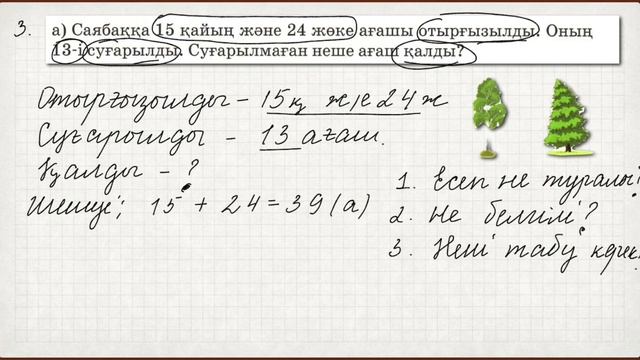 3.
а) Саябаққа 15 қайың және 24 жөке ағашы отырғызылды. Оның
13-і суғарылды. Суғарылмаған неше ағаш қалды?
Отырғызылды – 15қ ж/е 24 ж
Суғарылды – 13 ағаш.
Қалды – ?
Шешуі: 15 + 24 = 39 (а)
1. Есеп не туралы?
2. Не белгілі?
3. Нені табу керек